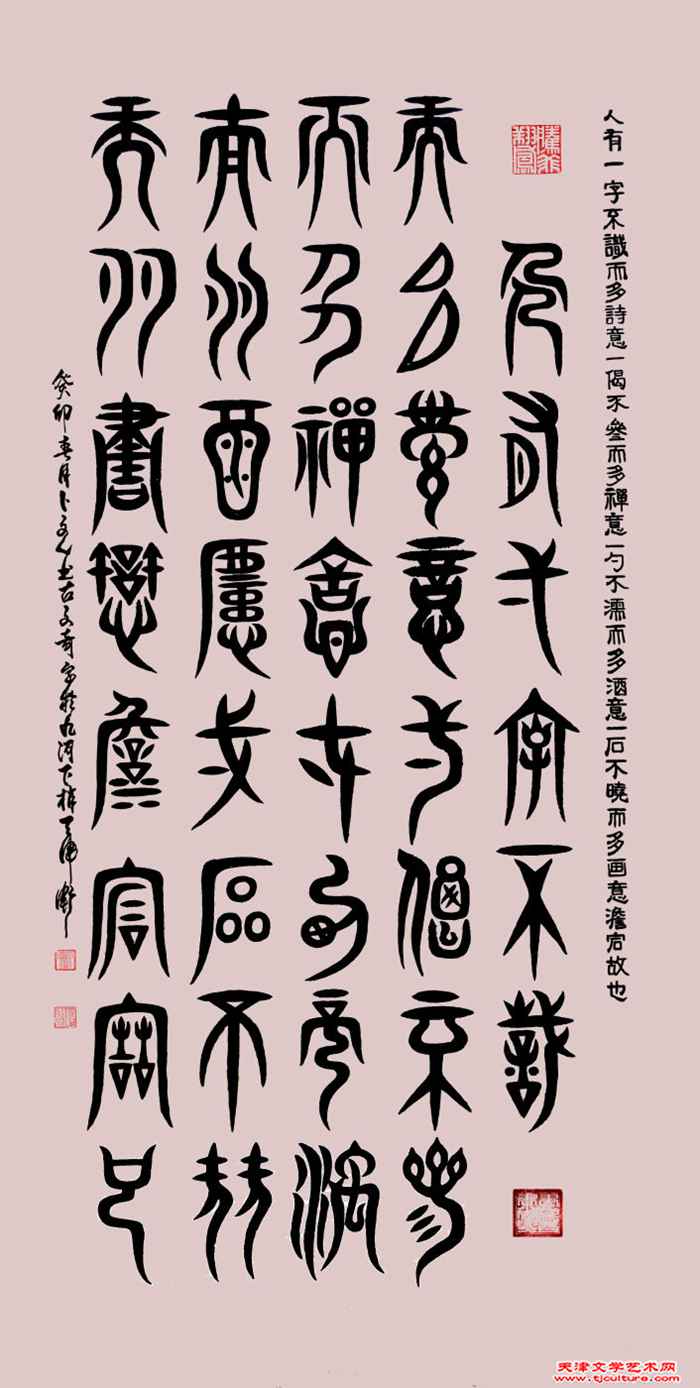 人有一字不識而多詩意一偈不參而多禪意一勺不濡而多酒意一石不曉而多画意澹宕故也
人有一字不識
而多詩意一偈不參
而多禪意一勺不濡
而多酒意一石不曉
而多畫意澹宕故也
癸卯春月书古文奇字於九河下梢天津衛
天津文学艺术网
www.tjculture.com